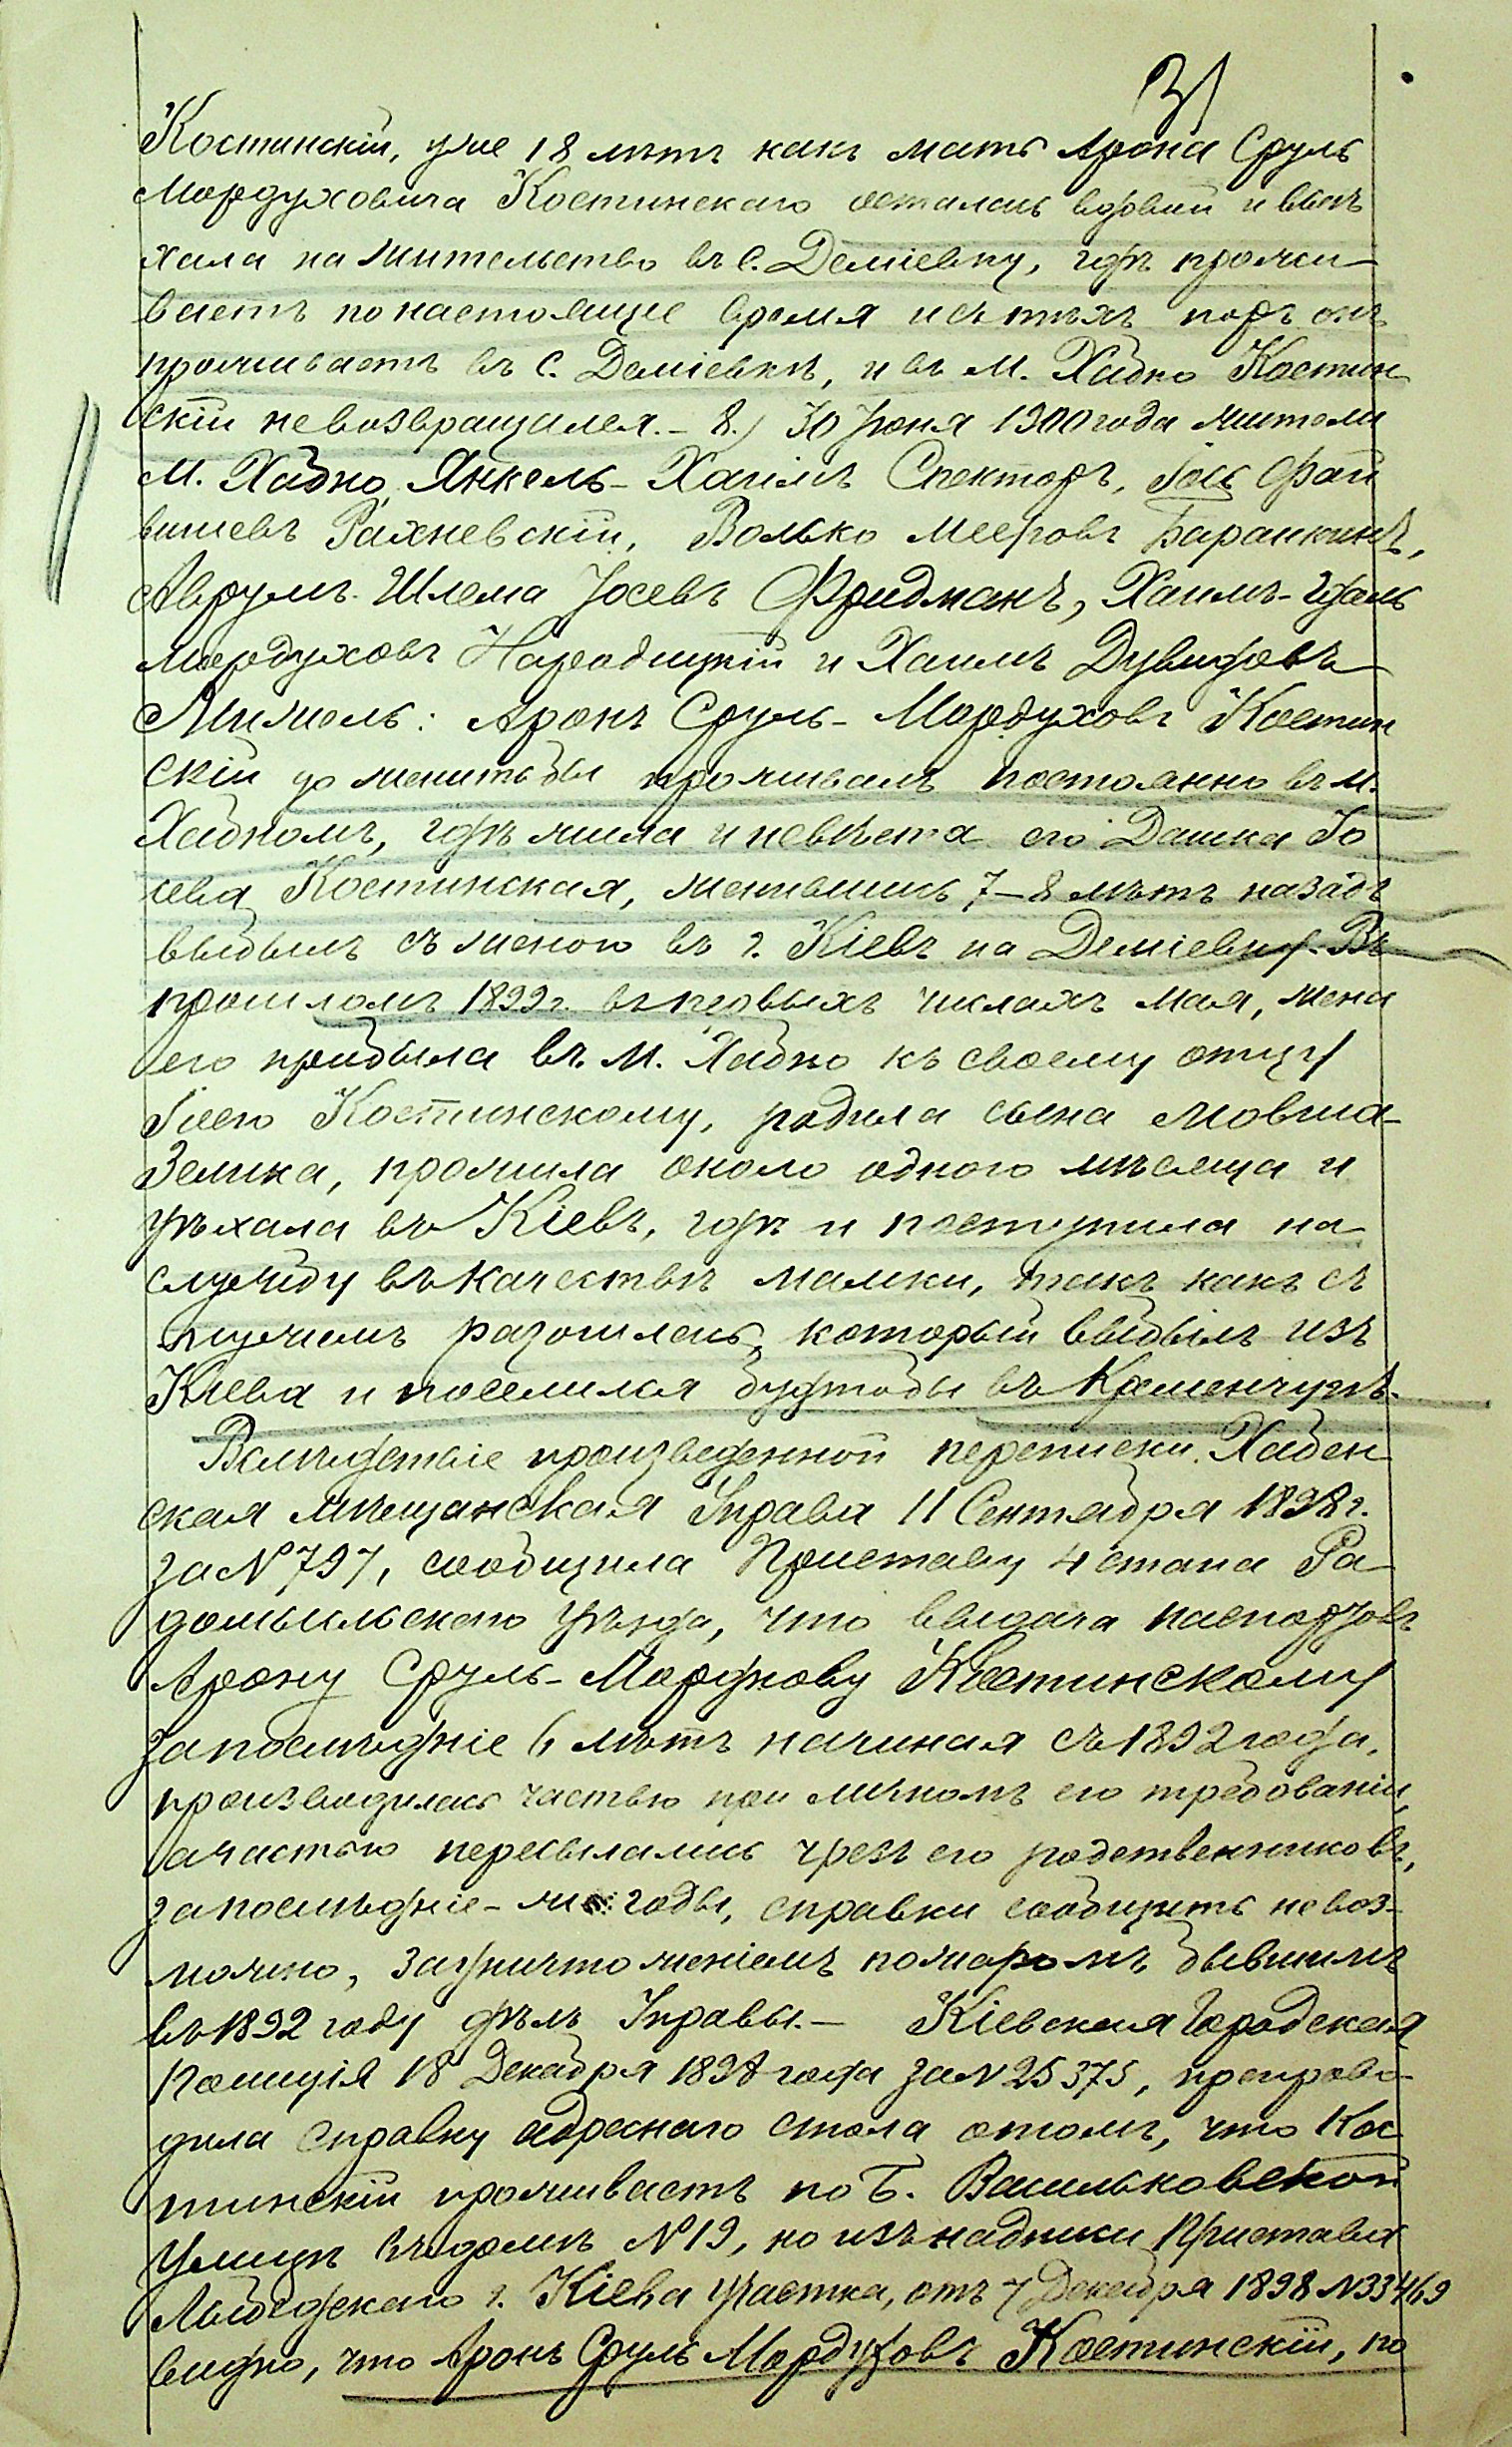 31
Костинскій, уже 18 лѣтъ какъ мать Арона Сруль
Мордуховича Костинскаго осталась вдовой и выѣ
хала на жительство въ с. Деміевку, гдѣ прожи-
ваетъ по настоящее время и съ тѣхъ поръ онъ
проживаетъ въ с. Деміевкѣ, и въ м. Хабно Костин
скій не возвращался.- 8.) 30 Іюня 1900 года жители
м. Хабно, Янкель-Хаимъ Спекторъ, Іось Фай
вишевъ Рахневскій, Волько Мееровъ Баранкинъ,
Аврумъ-Шлема Іосевъ Фридманъ, Хаимъ-Гдаль
Мордуховъ Народицкій и Хаимъ Дувидовъ
Мимель: Аронъ Сруль-Мордуховъ Костин
скій до женитьбы проживалъ постоянно въ м.
Хабномъ, гдѣ жила и невѣста его Дашка Іо
сева Костинская, женившись 7-8 лѣтъ назадъ
выбылъ съ женою въ г. Кіевъ на Деміевку. Въ
прошломъ 1899 г. въ первыхъ числахъ Мая, жена
его прибыла въ м. Хабно къ своему отцу
Іосю Костинскому, родила сына Мовша-
Зелика, прожила около одного мѣсяца и
уѣхала въ Кіевъ, гдѣ и поступила на
службу въ качествѣ мамки, такъ какъ съ
мужемъ разошлась, который выбылъ изъ
Кіева и поселился будтобы въ Кременчугѣ.
Вслѣдствіе произведенной переписки, Хабен
ская мѣщанская Управа 11 Сентября 1898 г.
за № 797, сообщила Приставу 4 стана Ра-
домысльскаго уѣзда, что выдача паспортовъ
Арону Сруль-Мордкову Костинскому
за послѣдніе 6 лѣтъ начиная съ 1892 года,
производилась частью при личномъ его требованіи,
а частью пересылались чрезъ его родственниковъ,
за послѣдніе- годы, справки сообщить невоз-
можно, за уничтоженіемъ пожаромъ, бывшимъ
въ 1892 году дѣлъ Управы.- Кіевская Городская
Полиція 18 Декабря 1898 года за № 25375, препрово-
дила справку адреснаго стола о томъ, что Кос
тинскій проживаетъ по Б. Васильковской
улицѣ въ домѣ № 19, но изъ надписи Пристава
Лыбедскаго г. Кіева участка, отъ 7 Декабря 1898 № 33469
видно, что Аронъ Сруль Мордуховъ Костинскій, по